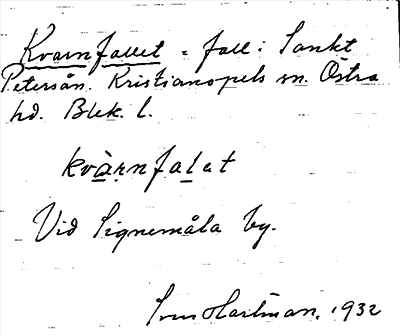 Kvarnfallet = fall i Sankt
Petersån. Kristianopels sn. Östra
hd. Blek. l.
kvàrnfalat
Vid Signemåla by.
Sven Hartman. 1932